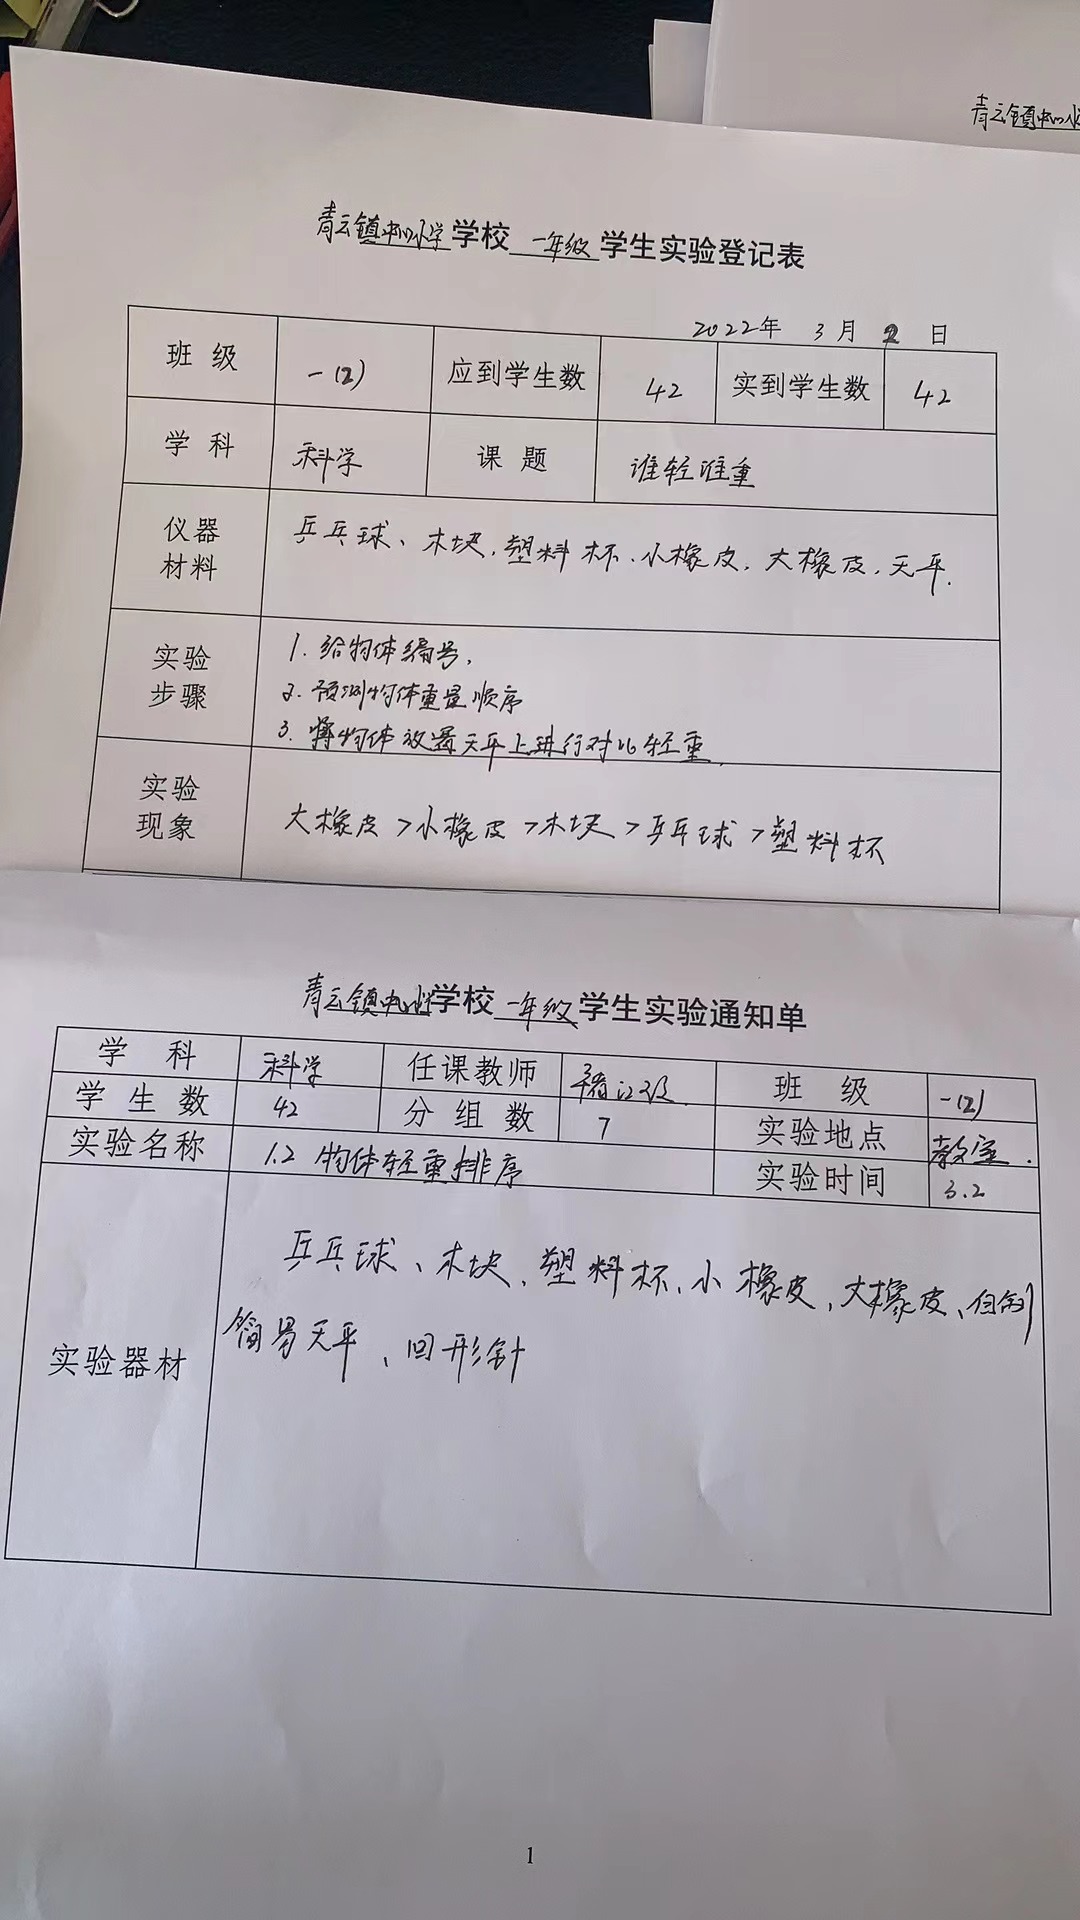 青云镇中心小
青云镇中心小学学校一年级学生实验登记表
2022年 3月 2日
班 级 一(2) 应到学生数 42 实到学生数 42
学 科 科学 课 题 谁轻谁重
仪器材料 乒乓球、木块、塑料杯、小橡皮、大橡皮、天平.
实验步骤 1.给物体编号,
2.预测物体重量顺序
3.将物体放置天平上进行对比轻重.
实验现象 大橡皮>小橡皮>木块>乒乓球>塑料杯
青云镇中心小学学校一年级学生实验通知单
学 科 科学 任课教师 班 级 一(2)
学生数 42 分组数 7 实验地点 教室.
实验名称 1.2 物体轻重排序 实验时间 3.2
实验器材 乒乓球、木块、塑料杯、小橡皮、大橡皮、自制
简易天平、回形针
1